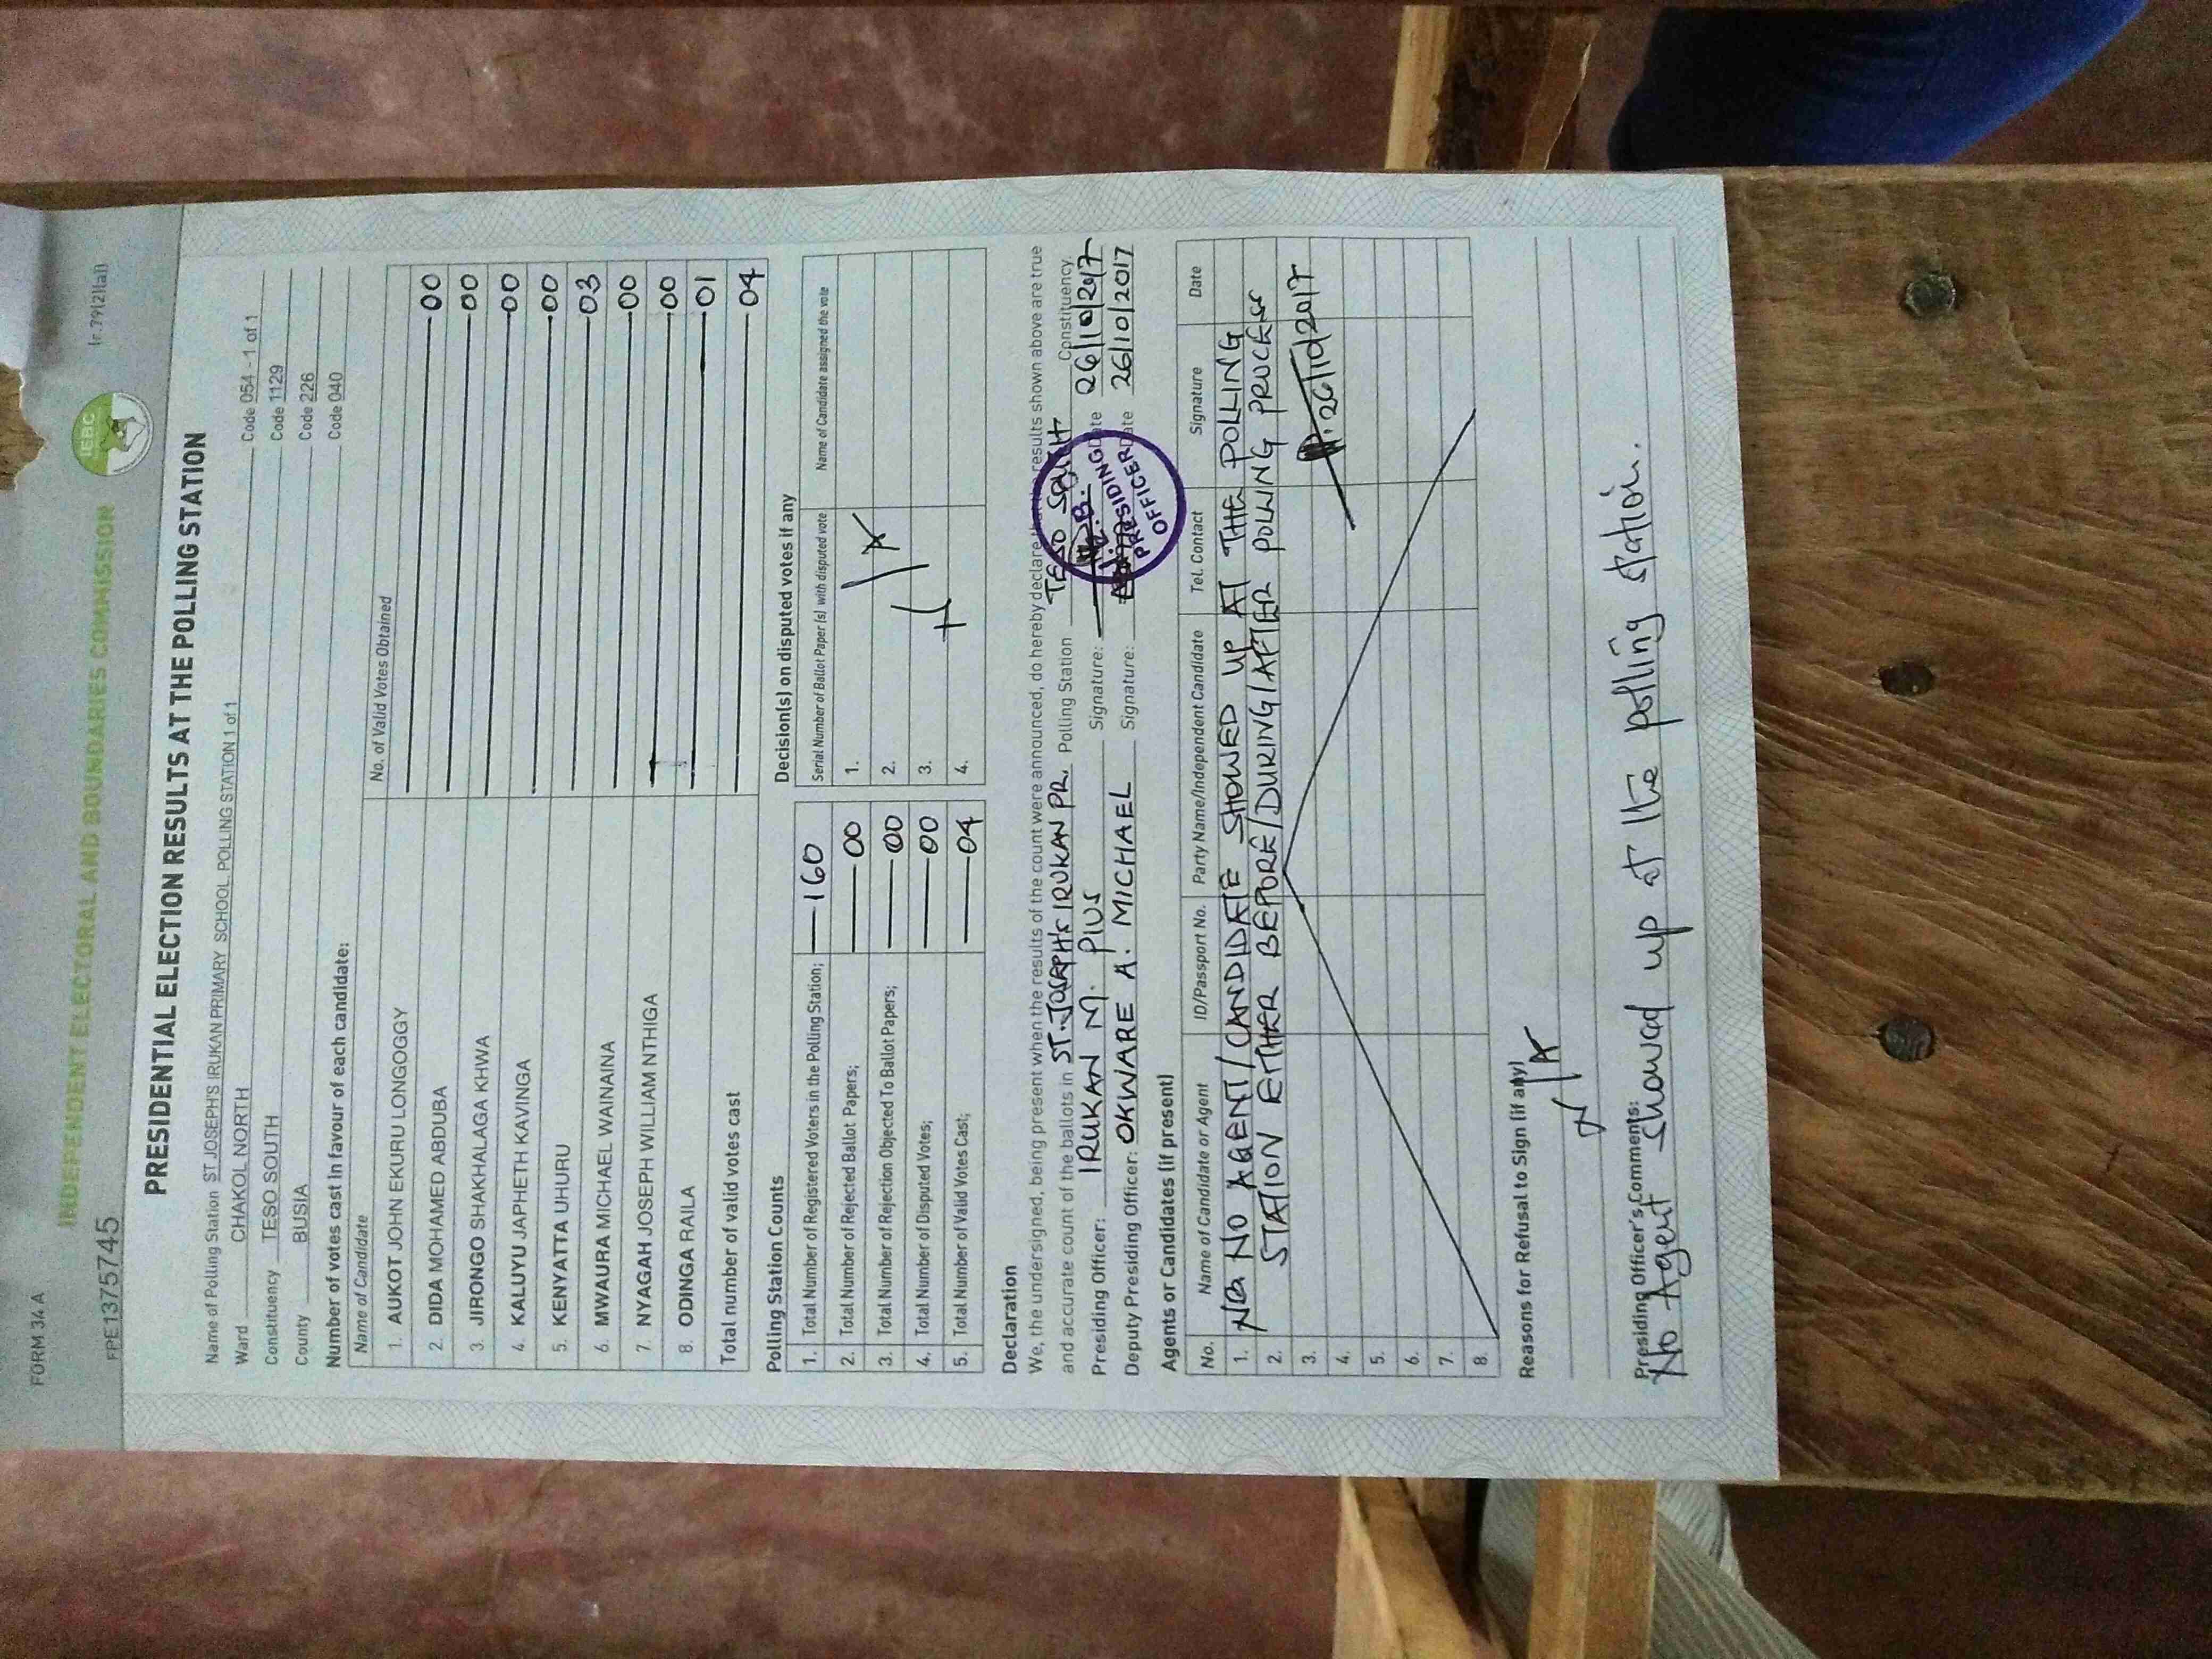 FORM 34 A
INDEPENDENT ELECTORAL AND BOUNDARIES COMMISSION
IEBC
(r.79(2)(a))
FPE1375745
PRESIDENTIAL ELECTION RESULTS AT THE POLLING STATION
Name of Polling Station ST JOSEPH'S IRUKAN PRIMARY SCHOOL POLLING STATION 1 of 1 Code 054 - 1 of 1
Ward CHAKOL NORTH Code 1129
Constituency TESO SOUTH Code 226
County BUSIA Code 040
Number of votes cast in favour of each candidate:
Name of Candidate No. of Valid Votes Obtained
1. AUKOT JOHN EKURU LONGOGGY 00
2. DIDA MOHAMED ABDUBA 00
3. JIRONGO SHAKHALAGA KHWA 00
4. KALUYU JAPHETH KAVINGA 00
5. KENYATTA UHURU 03
6. MWAURA MICHAEL WAINAINA 00
7. NYAGAH JOSEPH WILLIAM NTHIGA 00
8. ODINGA RAILA 01
Total number of valid votes cast 04
Polling Station Counts
1. Total Number of Registered Voters in the Polling Station; 160
2. Total Number of Rejected Ballot Papers; 00
3. Total Number of Rejection Objected To Ballot Papers; 00
4. Total Number of Disputed Votes; 00
5. Total Number of Valid Votes Cast; 04
Decision(s) on disputed votes if any
Serial Number of Ballot Paper (s) with disputed vote Name of Candidate assigned the vote
1.
2.
3.
4.
N/A
Declaration
We, the undersigned, being present when the results of the count were announced, do hereby declare that the results shown above are true
and accurate count of the ballots in ST. JOSEPH'S IRUKAN PR. Polling Station TESO SOUTH Constituency.
Presiding Officer: IRUKAN M. PIUS Signature: Date 26/10/2017
Deputy Presiding Officer: OKWARE A. MICHAEL Signature: Date 26/10/2017
PRESIDING OFFICER
Agents or Candidates (if present)
No. Name of Candidate or Agent ID/Passport No. Party Name/Independent Candidate Tel. Contact Signature Date
1. NO AGENT/CANDIDATE SHOWED UP AT THE POLLING
2. STATION EITHER BEFORE/DURING/AFTER POLLING PROCESS
3. 26/10/2017
4.
5.
6.
7.
8.
Reasons for Refusal to Sign (if any)
N/A
Presiding Officer's Comments:
No Agent showed up at the polling station.